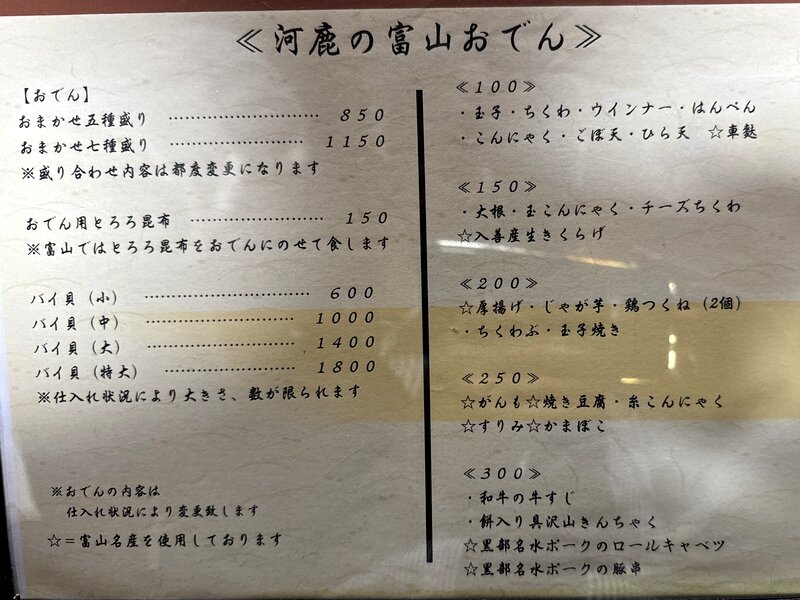 ≪河鹿の富山おでん≫
【おでん】
おまかせ五種盛り ………………………… 850
おまかせ七種盛り ……………………… 1150
※盛り合わせ内容は都度変更になります
おでん用とろろ昆布 ……………………… 150
※富山ではとろろ昆布をおでんにのせて食します
バイ貝（小） ………………………… 600
バイ貝（中） ……………………… 1000
バイ貝（大） ……………………… 1400
バイ貝（特大） …………………… 1800
※仕入れ状況により大きさ、数が限られます
※おでんの内容は
仕入れ状況により変更致します
☆＝富山名産を使用しております
≪100≫
・玉子・ちくわ・ウインナー・はんぺん
・こんにゃく・ごぼ天・ひら天　☆車麩
≪150≫
・大根・玉こんにゃく・チーズちくわ
☆入善産生きくらげ
≪200≫
☆厚揚げ・じゃが芋・鶏つくね（2個）
・ちくわぶ・玉子焼き
≪250≫
☆がんも☆焼き豆腐・糸こんにゃく
☆すりみ☆かまぼこ
≪300≫
・和牛の牛すじ
・餅入り具沢山きんちゃく
☆黒部名水ポークのロールキャベツ
☆黒部名水ポークの豚串